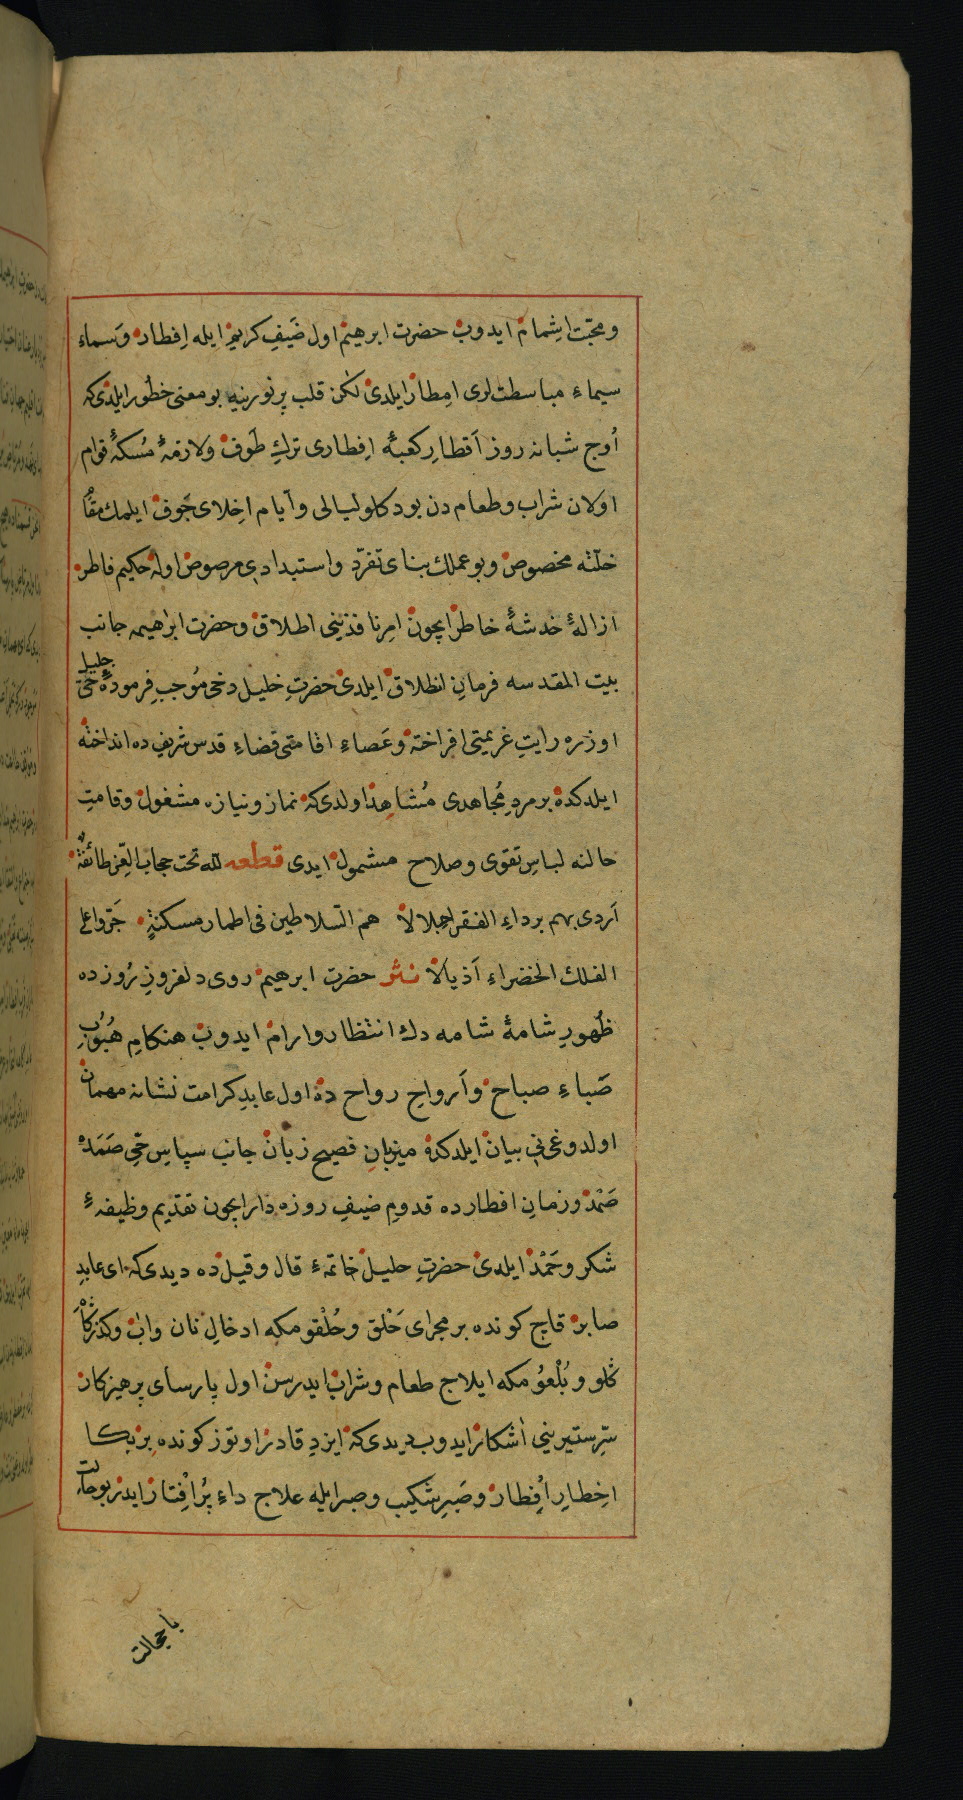 ومحبت اشمام ايدوب حضرت ابرهيم اول ضَيفِ كريم ايله اِفطار وسماء
سيماء مباسطت لرى امطار ايلدى لكن قلب پر نورينه بو معنى خطور ايلدى كه
اُوج شبانه روز اَقطارِ كعبهٔ اِفطارى تركِ طَوف ولازمهٔ مُسكهٔ قوام
اولان شراب وطعام دن بو دكلو ليالى وآيام اخِلاى جَوف ايلمك مقام
خلّته مخصوص وبو عملك بناى تفرّد واستبدادى مرصوص اوله حكيم فاطر
ازالهٔ خدشهٔ خاطر ايچون امرِ نافذينى اطلاق وحضرت ابراهيمه جانب
بيت المقدسه فرمانِ انطلاق ايلدى حضرتِ خليل دخى مُوجبِ فِرمودهٔ حىّ جليل
اوزره رايتِ عزيمتى افراخته وعَصاءِ اقامتى فضاءِ قدس شريف ده انداخته
ايلدكده بر مردِ مُجاهدى مُشاهد اولدى كه نماز ونيازه مشغول وقامتِ
حالنه لباسِ تقوى وصلاح مشمول ايدى قطعه لله تحت حجاب العِزّ طائفة
اَردى بهم برداءِ الفقر اجلالا هم السّلاطين فى اطمار مسكنةٍ جَرّوا على
الفلك الخضراءِ اَذيالا نثر حضرت ابرهيم روى دلفروزِ رُوزده
ظُهورِ شامهٔ شامه دك انتظار وارام ايدوب هنكامِ هُبُوبِ
صَباءِ صباح واَرواحِ رواح ده اول عابدِ كرامت نشانه مهمان
اولدوغى نى بيان ايلدكده ميزبانِ فصيح زبان جانب سپاسِ حىّ صَمَده
صَمْد وزمانِ افطارده قدومِ ضيفِ روزه دار ايچون تقديم وظيفهٔ
شكر وحَمْد ايلدى حضرتِ خليل خاتمهٔ قال وقيل ده ديدى كه اى عابدِ
صابر قاچ كونده بر مجراى حَلْق وحُلْقومكه ادخالِ نان واب وكذركاهِ
كلو وبُلْعُومكه ايلاج طعام وشراب ايدرسن اول پارساى پرهيزكار
سِرّ ستيرينى اَشكار ايدوب ديدى كه ايزدِ قادر اوتوز كونده بر بكا
اخِطارِ اِفطار وصَبرِ شكيب وصبر ايله علاج داءِ پُر اِفْتاز ايدر بو حالت
يا حالت